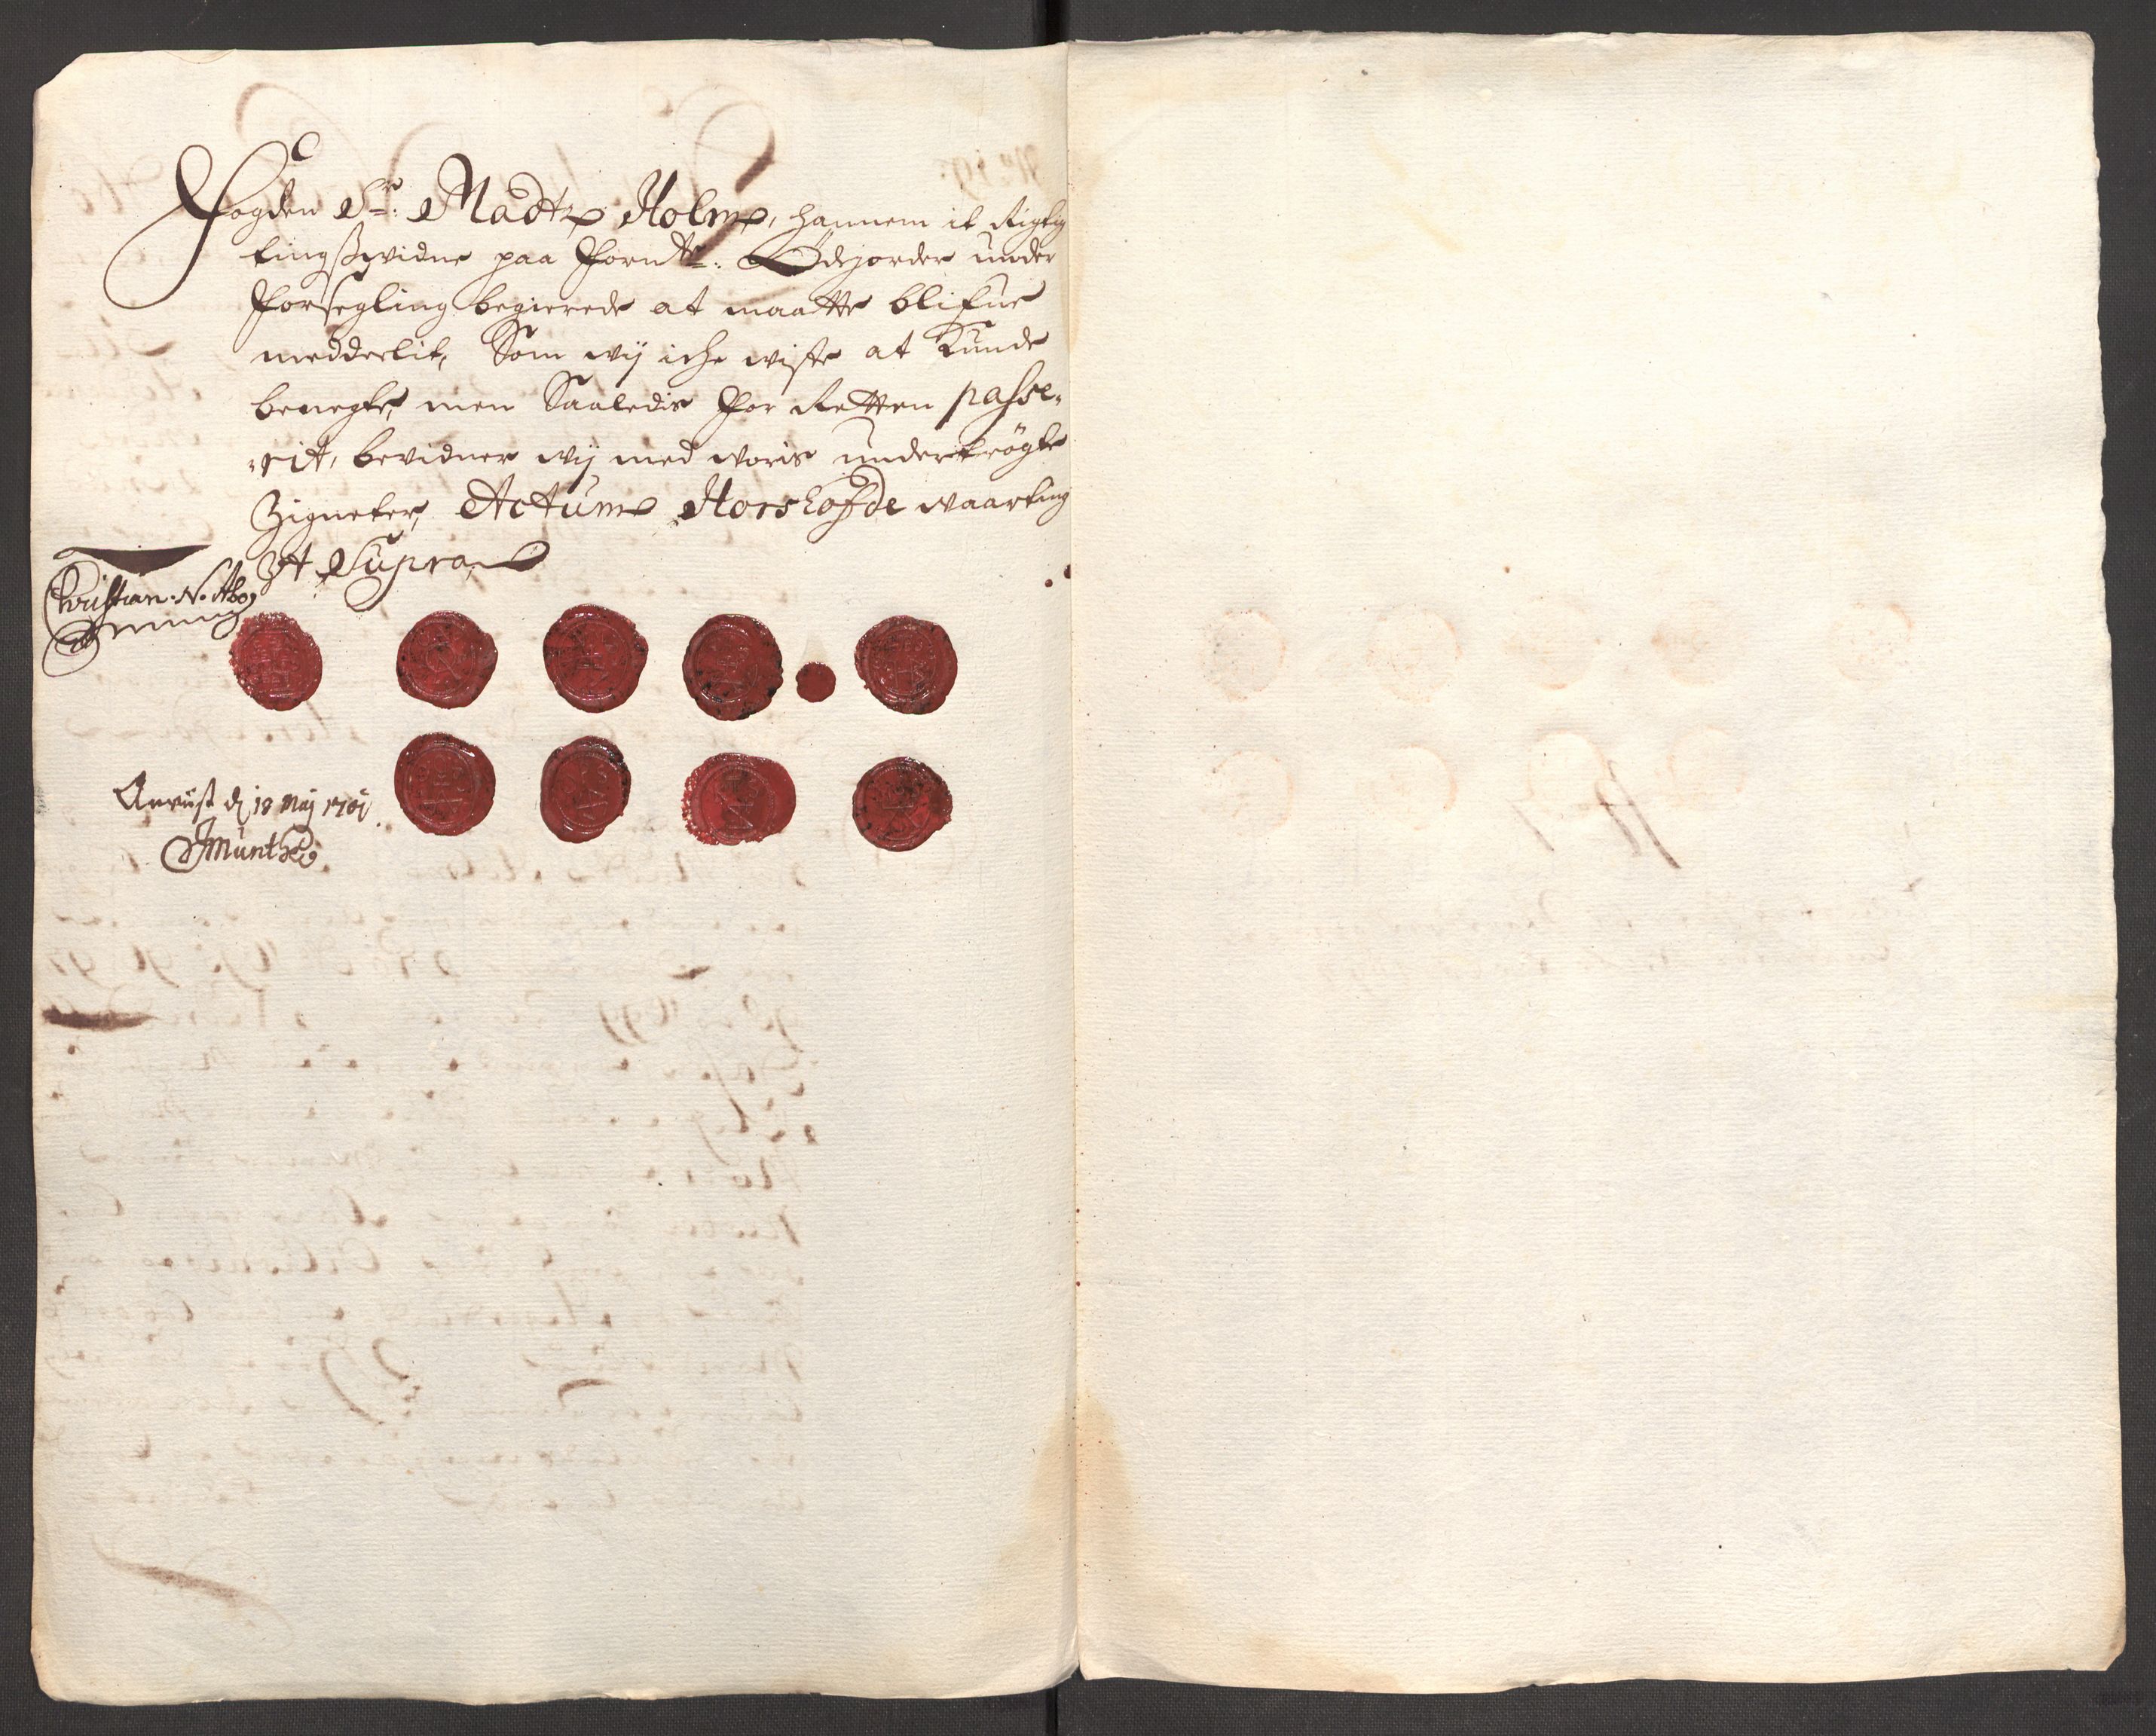 Fogden Sr: Madtz Holm, hannem it Rigtig
tingsvidne paa Forndte: Ødejorder under
Forsegling begierede at maatte blifue
medderlit, Som wij iche wiste at Kunde
benegte, men Saaledis for Retten passe-
-rit, bevidner wij med woris undertrögte
Zigneter, Actum Horshofde waarting
Ut Supra
Christian N.
Anvist d 18 Maj 1701
JMunthe